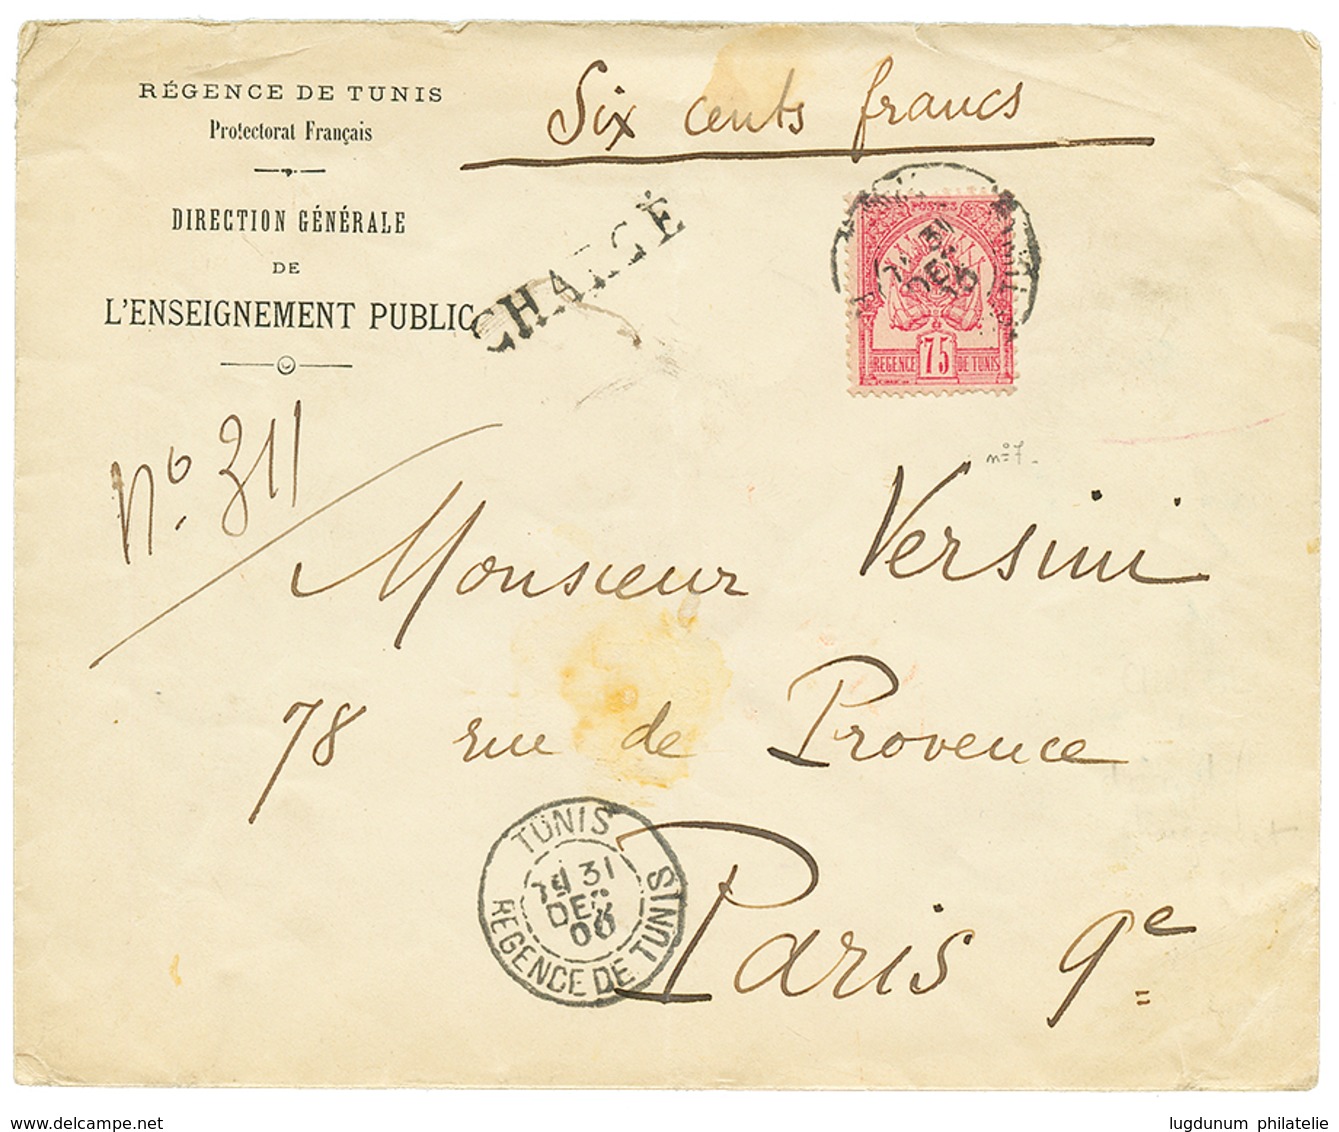 RÉGENCE DE TUNIS
Protectorat Français
DIRECTION GÉNÉRALE
DE
L'ENSEIGNEMENT PUBLIC
Six cents francs
CHARGÉ
POSTES
31
DEC
75
REGENCE DE TUNIS
nº 7
Nº 311
Monsieur Versini
78 rue de Provence
Paris 9e
TUNIS
31
DEC
00
REGENCE DE TUNIS
www.delcampe.net
lugdunum philatelie